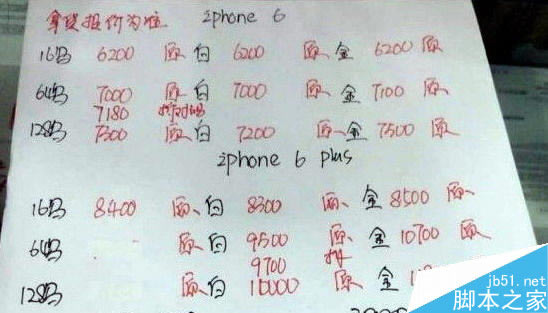 拿货报价为准 iphone 6
16G黑 6200 原 白 6200 原 金 6200 原
64G黑 7000 原 白 7000 原 金 7100 原
7180
128G黑 7300 原 白 7200 原 金 7500 原
iphone 6 plus
16G黑 8400 原 白 8300 原 金 8500 原
64G黑 原 白 9500 原 金 10700 原
9700
128G黑 原 白 10000 原 金
jb51.net
脚本之家